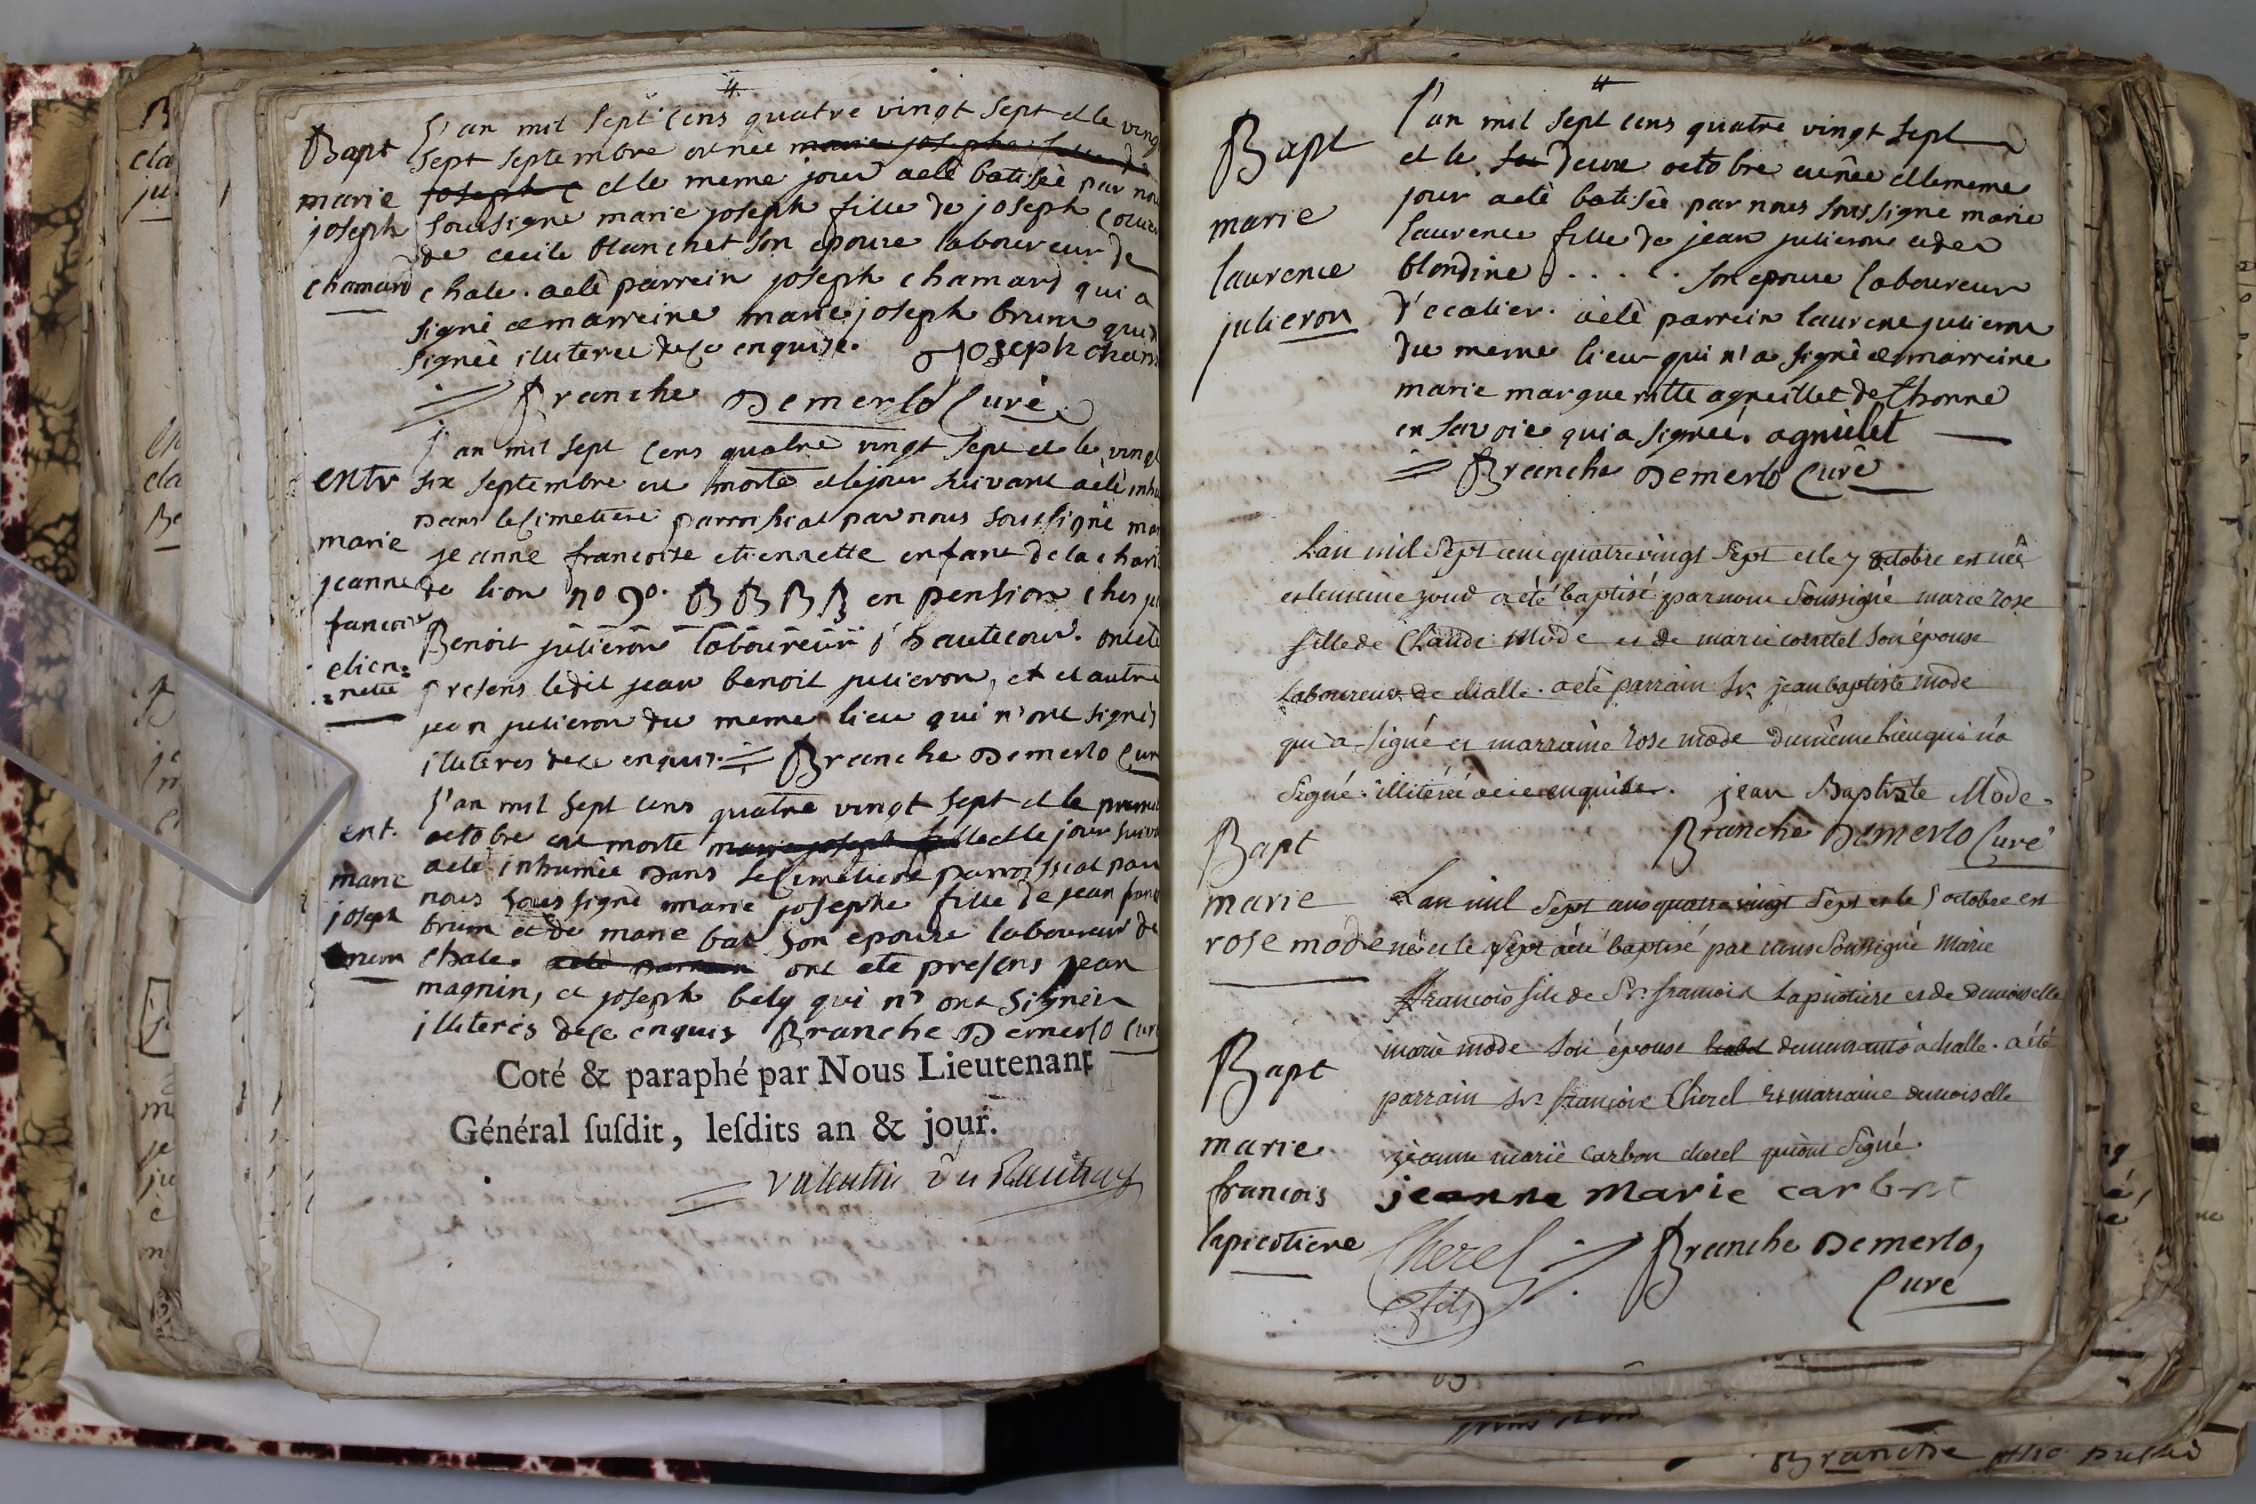 Bapt
marie
joseph
chamard
L'an mil sept cens quatre vingt sept et le vingt
sept septembre est née marie josephe fille de
joseph c et le meme jour a eté batisée par nous
soussigné marie joseph fille de joseph
de cecile blanchet son epouse laboureur de
chale. a eté parrein joseph chamard qui a
signé et marreine marie joseph brun qui n
signée illiteree de ce enquise. joseph cham
Branche Demerlo Curé
entr
marie
jeanne
francoise
etien=
=nette
L'an mil sept cens quatre vingt sept et le vingt
six septembre est morte et le jour suivant a eté inhu
dans le cimetiere parroissial par nous soussigné mar
jeanne francoise etiennette enfant de la charit
de lion no 90. B B B B en pension ches
Benoit julieron laboureur d'hautecour. ont eté
presens ledit jean benoit julieron, et et autre
jean julieron du meme lieu qui n'ont signés
illiteres de ce enquis. Branche Demerlo Cur
ent.
marie
joseph
brum
L'an mil sept cens quatre vingt sept et le premie
octobre est morte marie joseph fille et le jour suiva
a eté inhumée dans le cimetiere parroissial par
nous soussigné marie josephe fille de jean franc
brum et de marie bat son epouse laboureur de
chale. a eté parrein ont eté presens jean
magnin, et joseph bely qui n'ont signés
illiterés de ce enquis Branche Demerlo Cur
Coté & paraphé par Nous Lieutenant
Général ſuſdit, leſdits an & jour.
Valentin du
Bapt
marie
laurence
julieron
L'an mil sept cens quatre vingt sept
et le deux octobre est née et le meme
jour a eté batisée par nous soussigné marie
laurence fille de jean julieron et de
blondine . . . . son epouse laboureur
d'ecalier. a eté parrein laurent julieron
du meme lieu qui n'a signé et marreine
marie margueritte agneillet de thonne
en savoie qui a signée. agnielet
Branche Demerlo Curé
L'an mil sept cent quatre vingt sept et le 7 octobre est née
et le meme jour a été baptisé par nous soussigné marie rose
fille de Claude Mode et de marie corretel son épouse
Laboureur de challe. a eté parrain Sr. jean baptiste mode
qui a signé et marraine rose mode du même lieu qui n'a
signé illitérée de ce enquise. jean Baptiste Mode
Branche Demerlo Curé
Bapt
marie
rose mode
L'an mil sept cens quatre vingt sept et le 5 octobre est
né et le sept a été baptisé par nous soussigné Marie
francois fils de Sr. francois Lapicotiere et de demoiselle
marie mode son épouse demeurants a challe. a été
parrain Sr. françois Cherel et marraine demoiselle
jeanne marie Carbon cherel qui ont signé.
Bapt
marie
francois
lapicotiere
jeanne Marie carbon
Cherel
fils
Branche Demerlo,
Curé
Branche